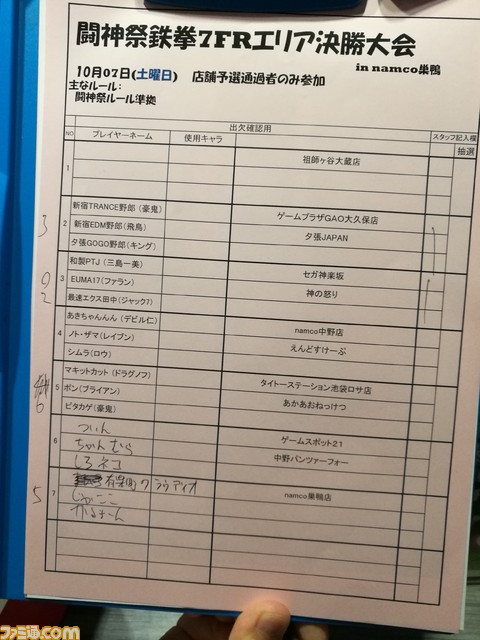 闘神祭鉄拳7FRエリア決勝大会
in namco巣鴨
10月07日(土曜日) 店舗予選通過者のみ参加
主なルール:
闘神祭ルール準拠
出欠確認用
スタッフ記入欄
NO
プレイヤーネーム
使用キャラ
抽選
1
祖師ヶ谷大蔵店
3
2
新宿TRANCE野郎(豪鬼)
新宿EDM野郎(飛鳥)
夕張GOGO野郎(キング)
ゲームプラザGAO大久保店
夕張JAPAN
2
3
和製PTJ(三島一美)
EUMA17(ファラン)
最速エクス田中(ジャック7)
セガ神楽坂
神の怒り
4
あきちゃんんん(デビル仁)
ノト・ザマ(レイブン)
シムラ(ロウ)
namco中野店
えんどすけーぷ
6
5
マキットカット(ドラグノフ)
ボン(ブライアン)
ピタカゲ(豪鬼)
タイトーステーション池袋ロサ店
あかあおねっけつ
6
ついん
ちゃんむら
しろネコ
ゲームスポット21
中野パンツァーフォー
5
7
namco巣鴨店
ファミ通.com